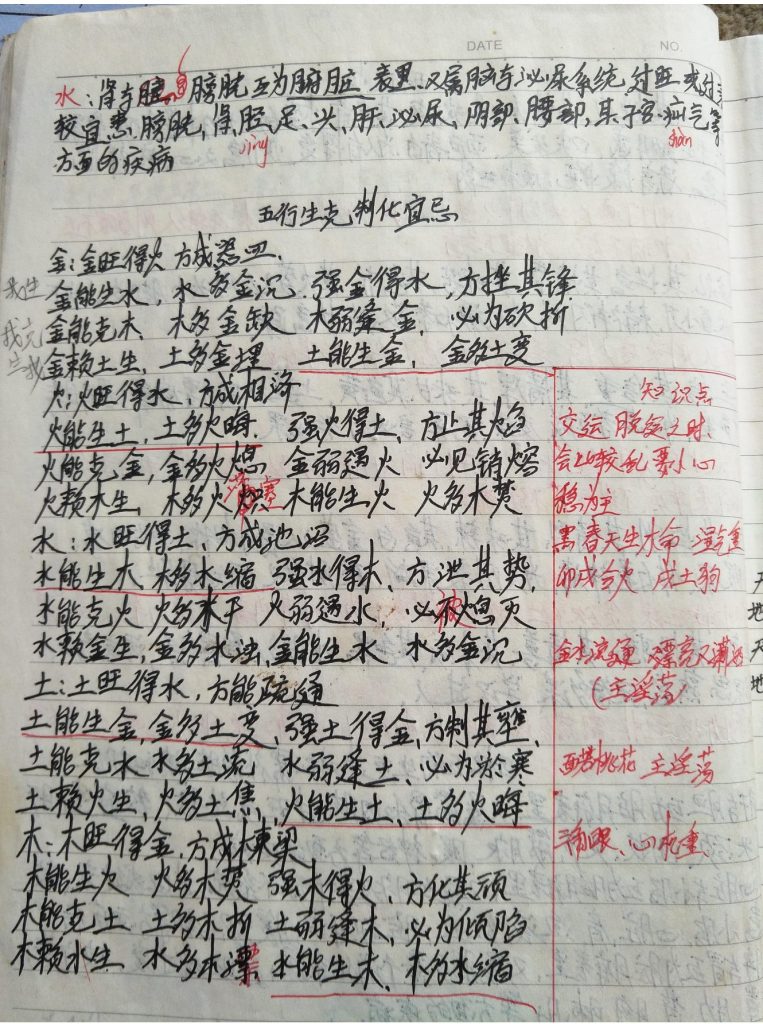 DATE NO.
水：肾与膀胱互为腑脏表里.又属脑与泌尿系统,过旺、或过
较宜患,膀胱,得,胫,足,头,肝,泌尿、阴部,腰部,某子宫.疝气等
jing shan
方面的疾病
五行生克制化宜忌
金：金旺得火方成器皿.
我生 金能生水，水多金沉.强金得水，方挫其锋
我克 金能克木.木多金缺 木弱逢金，必为砍折
生我 金赖土生，土多金埋 土能生金，金多土变
火：火旺得水，方成相济
火能生土，土多火晦.强火得土，方止其焰
火能克金，金多火熄 金弱遇火 必见销熔
火赖木生，木多火炽 塞 木能生火 火多木焚
水：水旺得土、方成池沼
水能生木、木多水缩 强水得木、方泄其势,
水能克火 火多水干 火弱遇水，必被熄灭
水赖金生，金多水浊，金能生水 水多金沉
土：土旺得水，方能疏通
土能生金，金多土变，强土得金，方制其壅、
土能克水 水多土流 水弱逢土、必为淤塞
土赖火生，火多土焦，火能生土、土多火晦
木：木旺得金，方成栋梁
木能生火 火多木焚 强木得火，方化其顽
木能克土 土多木折 土弱逢木，必为倾陷
木赖水生 水多木漂 水能生木、木多水缩
知识点
交运脱运之时.
会比较乱要小心
稳为主
春天生水命 湿气重
卯戌合火 戌土狗
金水流通 漂亮又
(主淫荡)
桃花 主淫荡
天
地
天
地